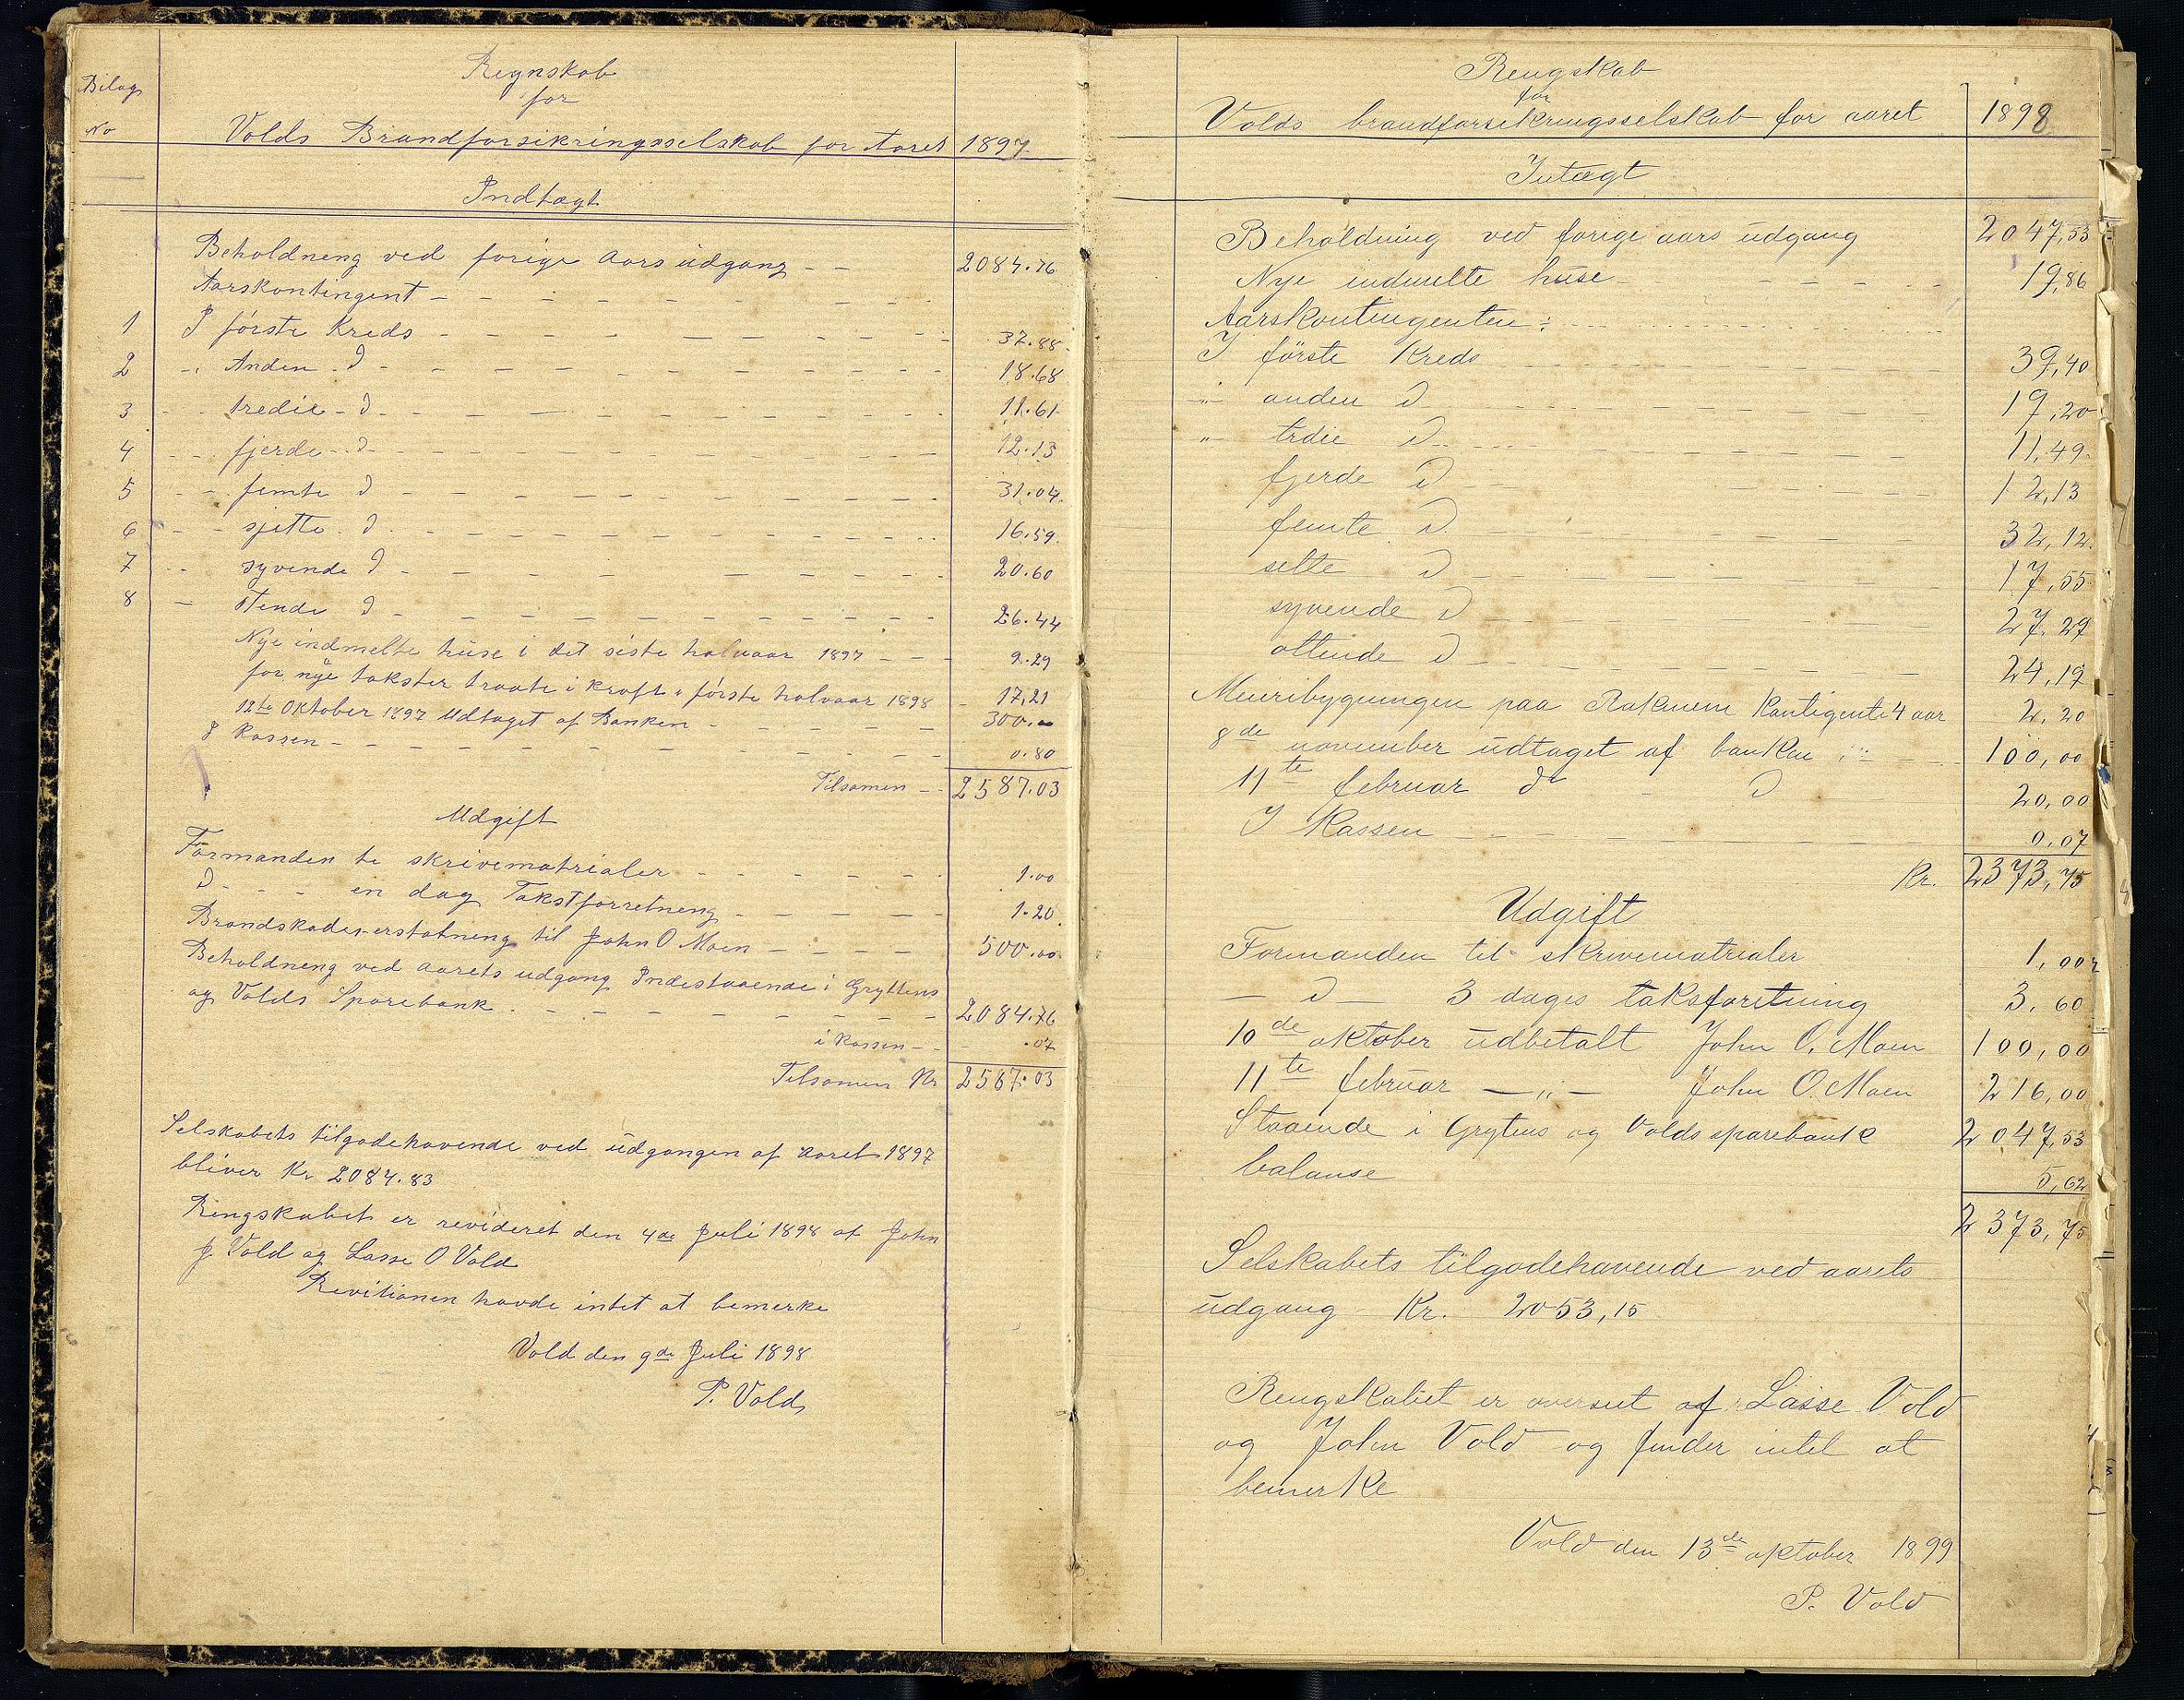 Bilag
No
Regnskab
for
Volds Brandforsikringsselskab for Aaret 1897.
Indtægt
Beholdneng ved forige Aars udgang 2084.76
Aarskontingent
1 I første Kreds 37.88
2 -,, Anden D 18.68
3 tredie D 11.61
4 fjerde D 12.13
5 femte D 31.04
6 sjette D 16.59
7 syvende D 20.60
8 ottende D 26.44
Nye indmelte huse i det siste halvaar 1897 9.29
for nye takster traate i kraft i første halvaar 1898 17,21
12te Oktober 1897 Udtaget af Banken 300.
I Kassen 0.80
Tilsamen 2587.03
Udgift
Formanden te skrivematrialer 1.00
D en dag Takstforretneng 1.20
Brandskades-erstatneng til John O Moen 500.00
Beholdneng ved aarets udgang Indestaaende i Gryttens
og Volds Sparebank 2084.76
i Kassen .07
Telsamen Kr 2587.03
Selskabets tilgodehavende ved udgangen af aaret 1897
bliver Kr 2084.83
Rengskabet er revideret den 4de Juli 1898 af John
J Vold og Lasse O Vold
Revitionen havde intet at bemerke
Vold den 9de Juli 1898
P. Vold
Rengskab
for
Volds brandforsikringsselskab for aaret 1898
Intægt
Beholdning ved forige aars udgang 2047,53
Nye indmelte huse 19,86
Aarskontingenten:
I første Kreds 39,40
-"- anden D 19,20
" trdie D 11,49
fjerde D 12,13
femte D 32,12
sette D 17,55
syvende D 27,29
ottende D 24,19
Meieribygningen paa Kontigente 4 aar 2,20
8de november udtaget af banken 100,00
11te februar D D 20,00
I Kassen 0,07
Kr. 2373,75
Udgift
Formanden til skrivematrialer 1,00
— D — 3 dages taksforetning 3.60
10de oktober udbetalt John O. Moen 100,00
11te februar —"— John O. Moen 216,00
Staaende i Grytens og Volds sparebank 2047,53
balanse 5,62
2373,75
Selskabets tilgodehavende ved aarets
udgang Kr. 2053,15
Rengskabet er overset af Lasse Vold
og John Vold og finder intet at
bemerke
Vold den 13de oktober 1899
P. Vold